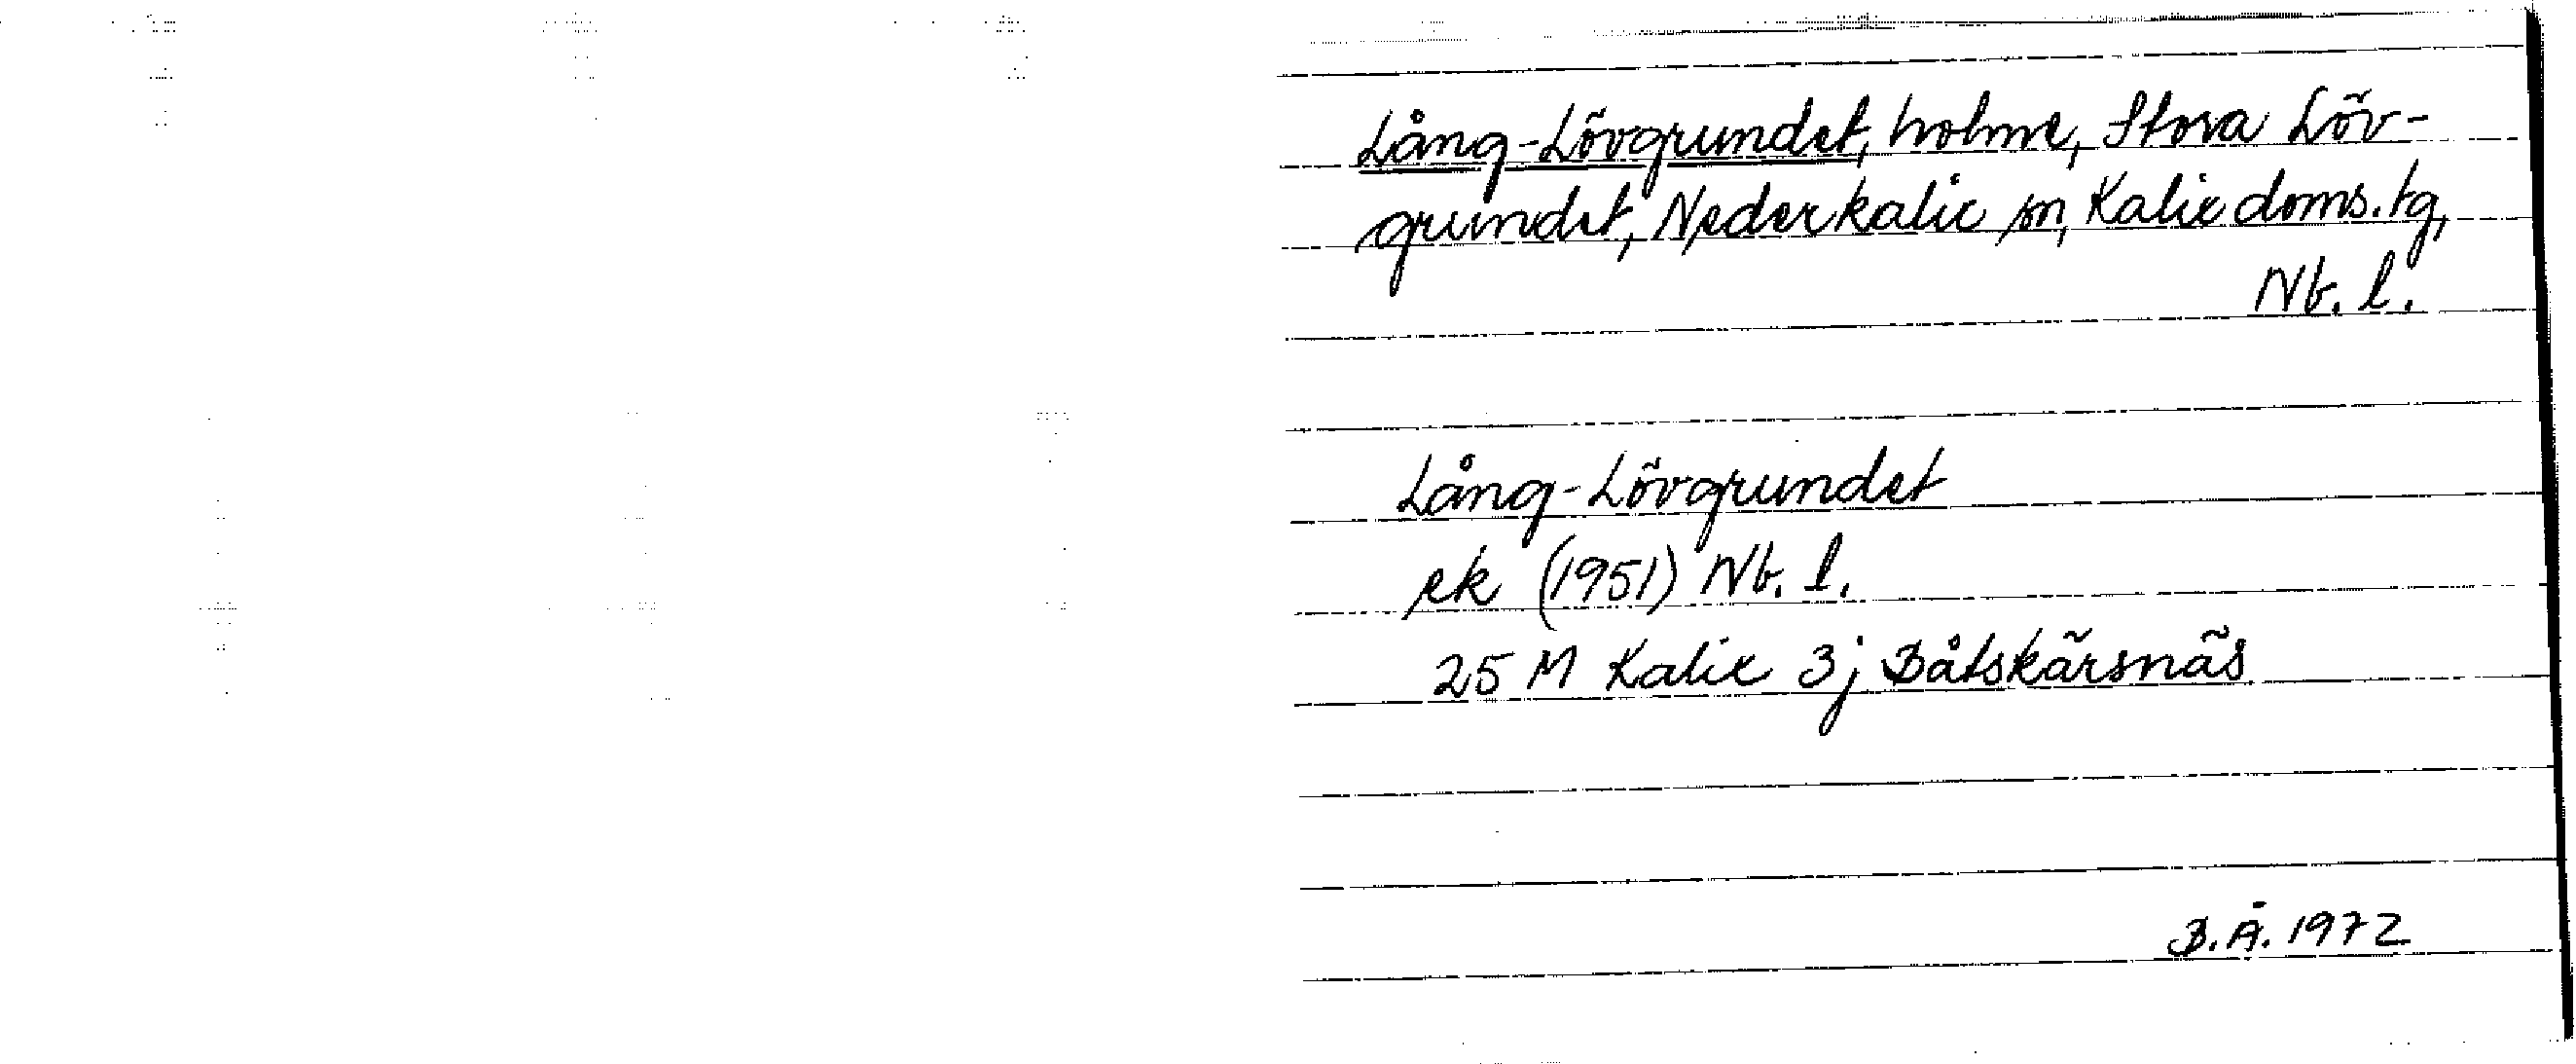 Lång-Lövgrundet, holme, Stora Löv-
grundet, Nederkalix sn, Kalix doms.tg,
Nb. l.
Lång-Lövgrundet
ek (1951) Nb. l.
25 M Kalix 3j Båtskärsnäs
B.Å. 1972